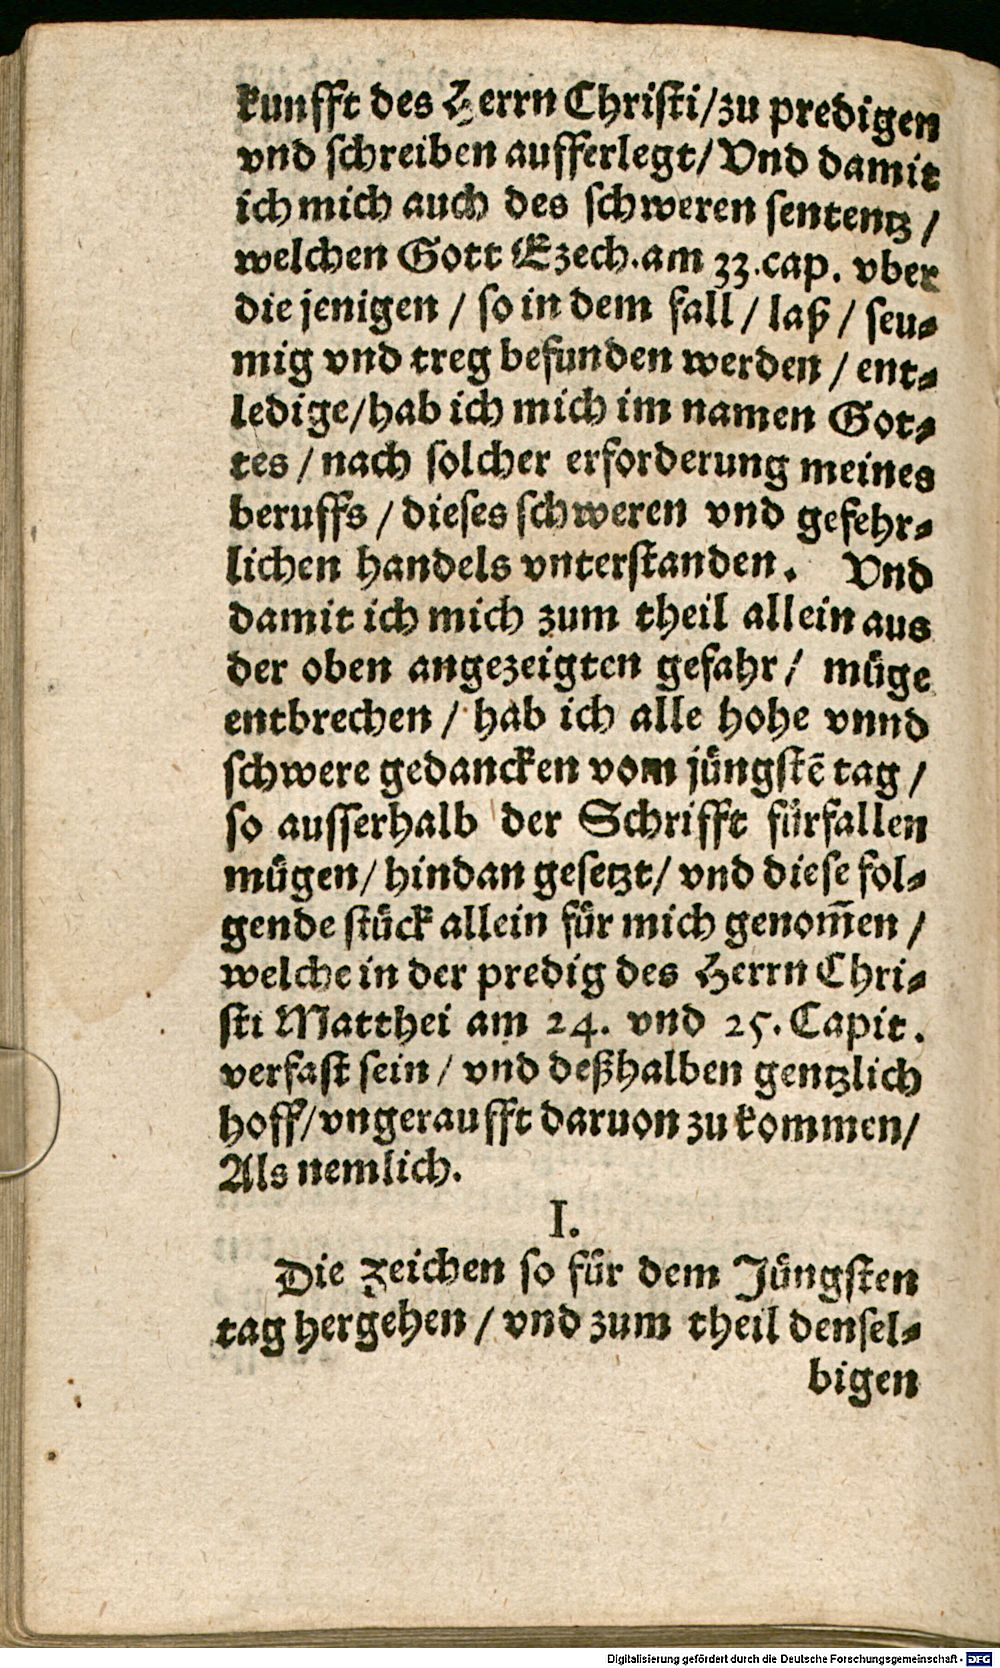 kunfft des Herrn Christi/zu predigen
vnd schreiben aufferlegt/Vnd damit
ich mich auch des schweren sententz/
welchen Gott Ezech.am 33.cap. vber
die jenigen / so in dem fall / laß / seu⸗
mig vnd treg befunden werden / ent⸗
ledige/hab ich mich im namen Got⸗
tes / nach solcher erforderung meines
beruffs / dieses schweren vnd gefehr⸗
lichen handels vnterstanden. Vnd
damit ich mich zum theil allein aus
der oben angezeigten gefahr/ müge
entbrechen / hab ich alle hohe vnnd
schwere gedancken vom jüngstē tag /
so ausserhalb der Schrifft fürfallen
mügen/ hindan gesetzt/ vnd diese fol⸗
gende stück allein für mich genom̃en /
welche in der predig des Herrn Chri⸗
sti Matthei am 24. vnd 25. Capit.
verfast sein / vnd deßhalben gentzlich
hoff/vngeraufft daruon zu kommen/
Als nemlich.
I.
Die Zeichen so für dem Jüngsten
tag hergehen / vnd zum theil densel⸗
bigen
Digitalisierung gefördert durch die Deutsche Forschungsgemeinschaft - DFG